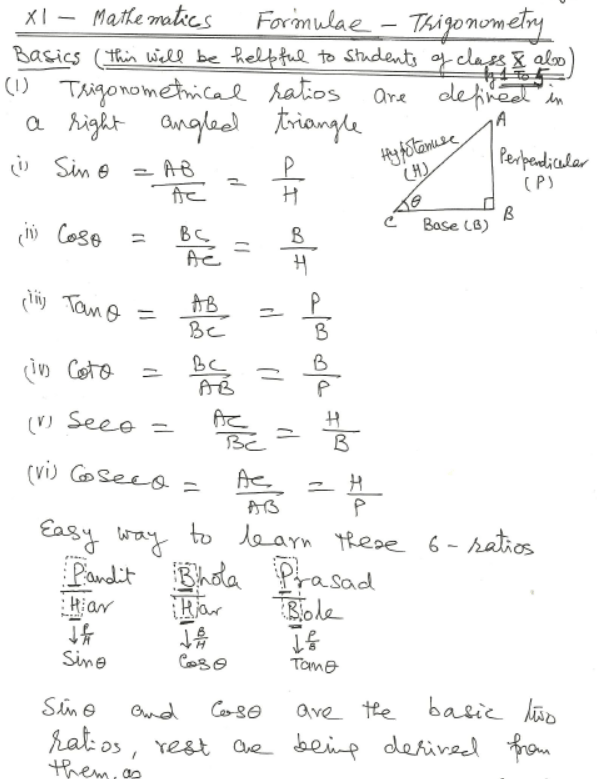 XI - Mathematics Formulae - Trigonometry
Basics (This will be helpful to students of class X also)
pg 1 to 5
(1) Trigonometrical ratios are defined in
a right angled triangle
(i) Sin θ = AB/AC = P/H
A
Hypotenuse (H)
Perpendicular (P)
θ
C
Base (B)
B
(ii) Cosθ = BC/AC = B/H
(iii) Tanθ = AB/BC = P/B
(iv) Cotθ = BC/AB = B/P
(v) Secθ = AC/BC = H/B
(vi) Cosecθ = AC/AB = H/P
Easy way to learn these 6-ratios
Pandit Bhola Prasad
Har Har Bole
↓P/H ↓B/H ↓P/B
Sinθ Cosθ Tanθ
Sinθ and Cosθ are the basic two
ratios, rest are being derived from
them, as